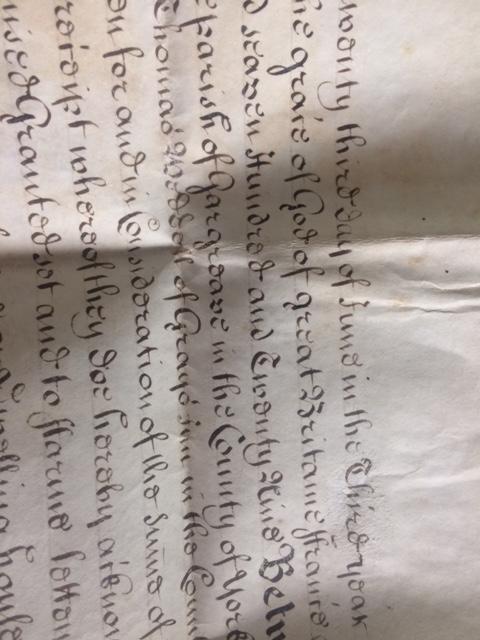 Twenty third day of June in the Third year
the grace of God of great Britaine ffrance
seaven Hundred and Twenty Nine Betw
parish of Gargrave in the County of York
Thomas of Grays inn in the Coun
on for and in Consideration of the Sume of
receipt whereof they doe hereby acknow
mised Granted set and to ffarme letten
dwelling house